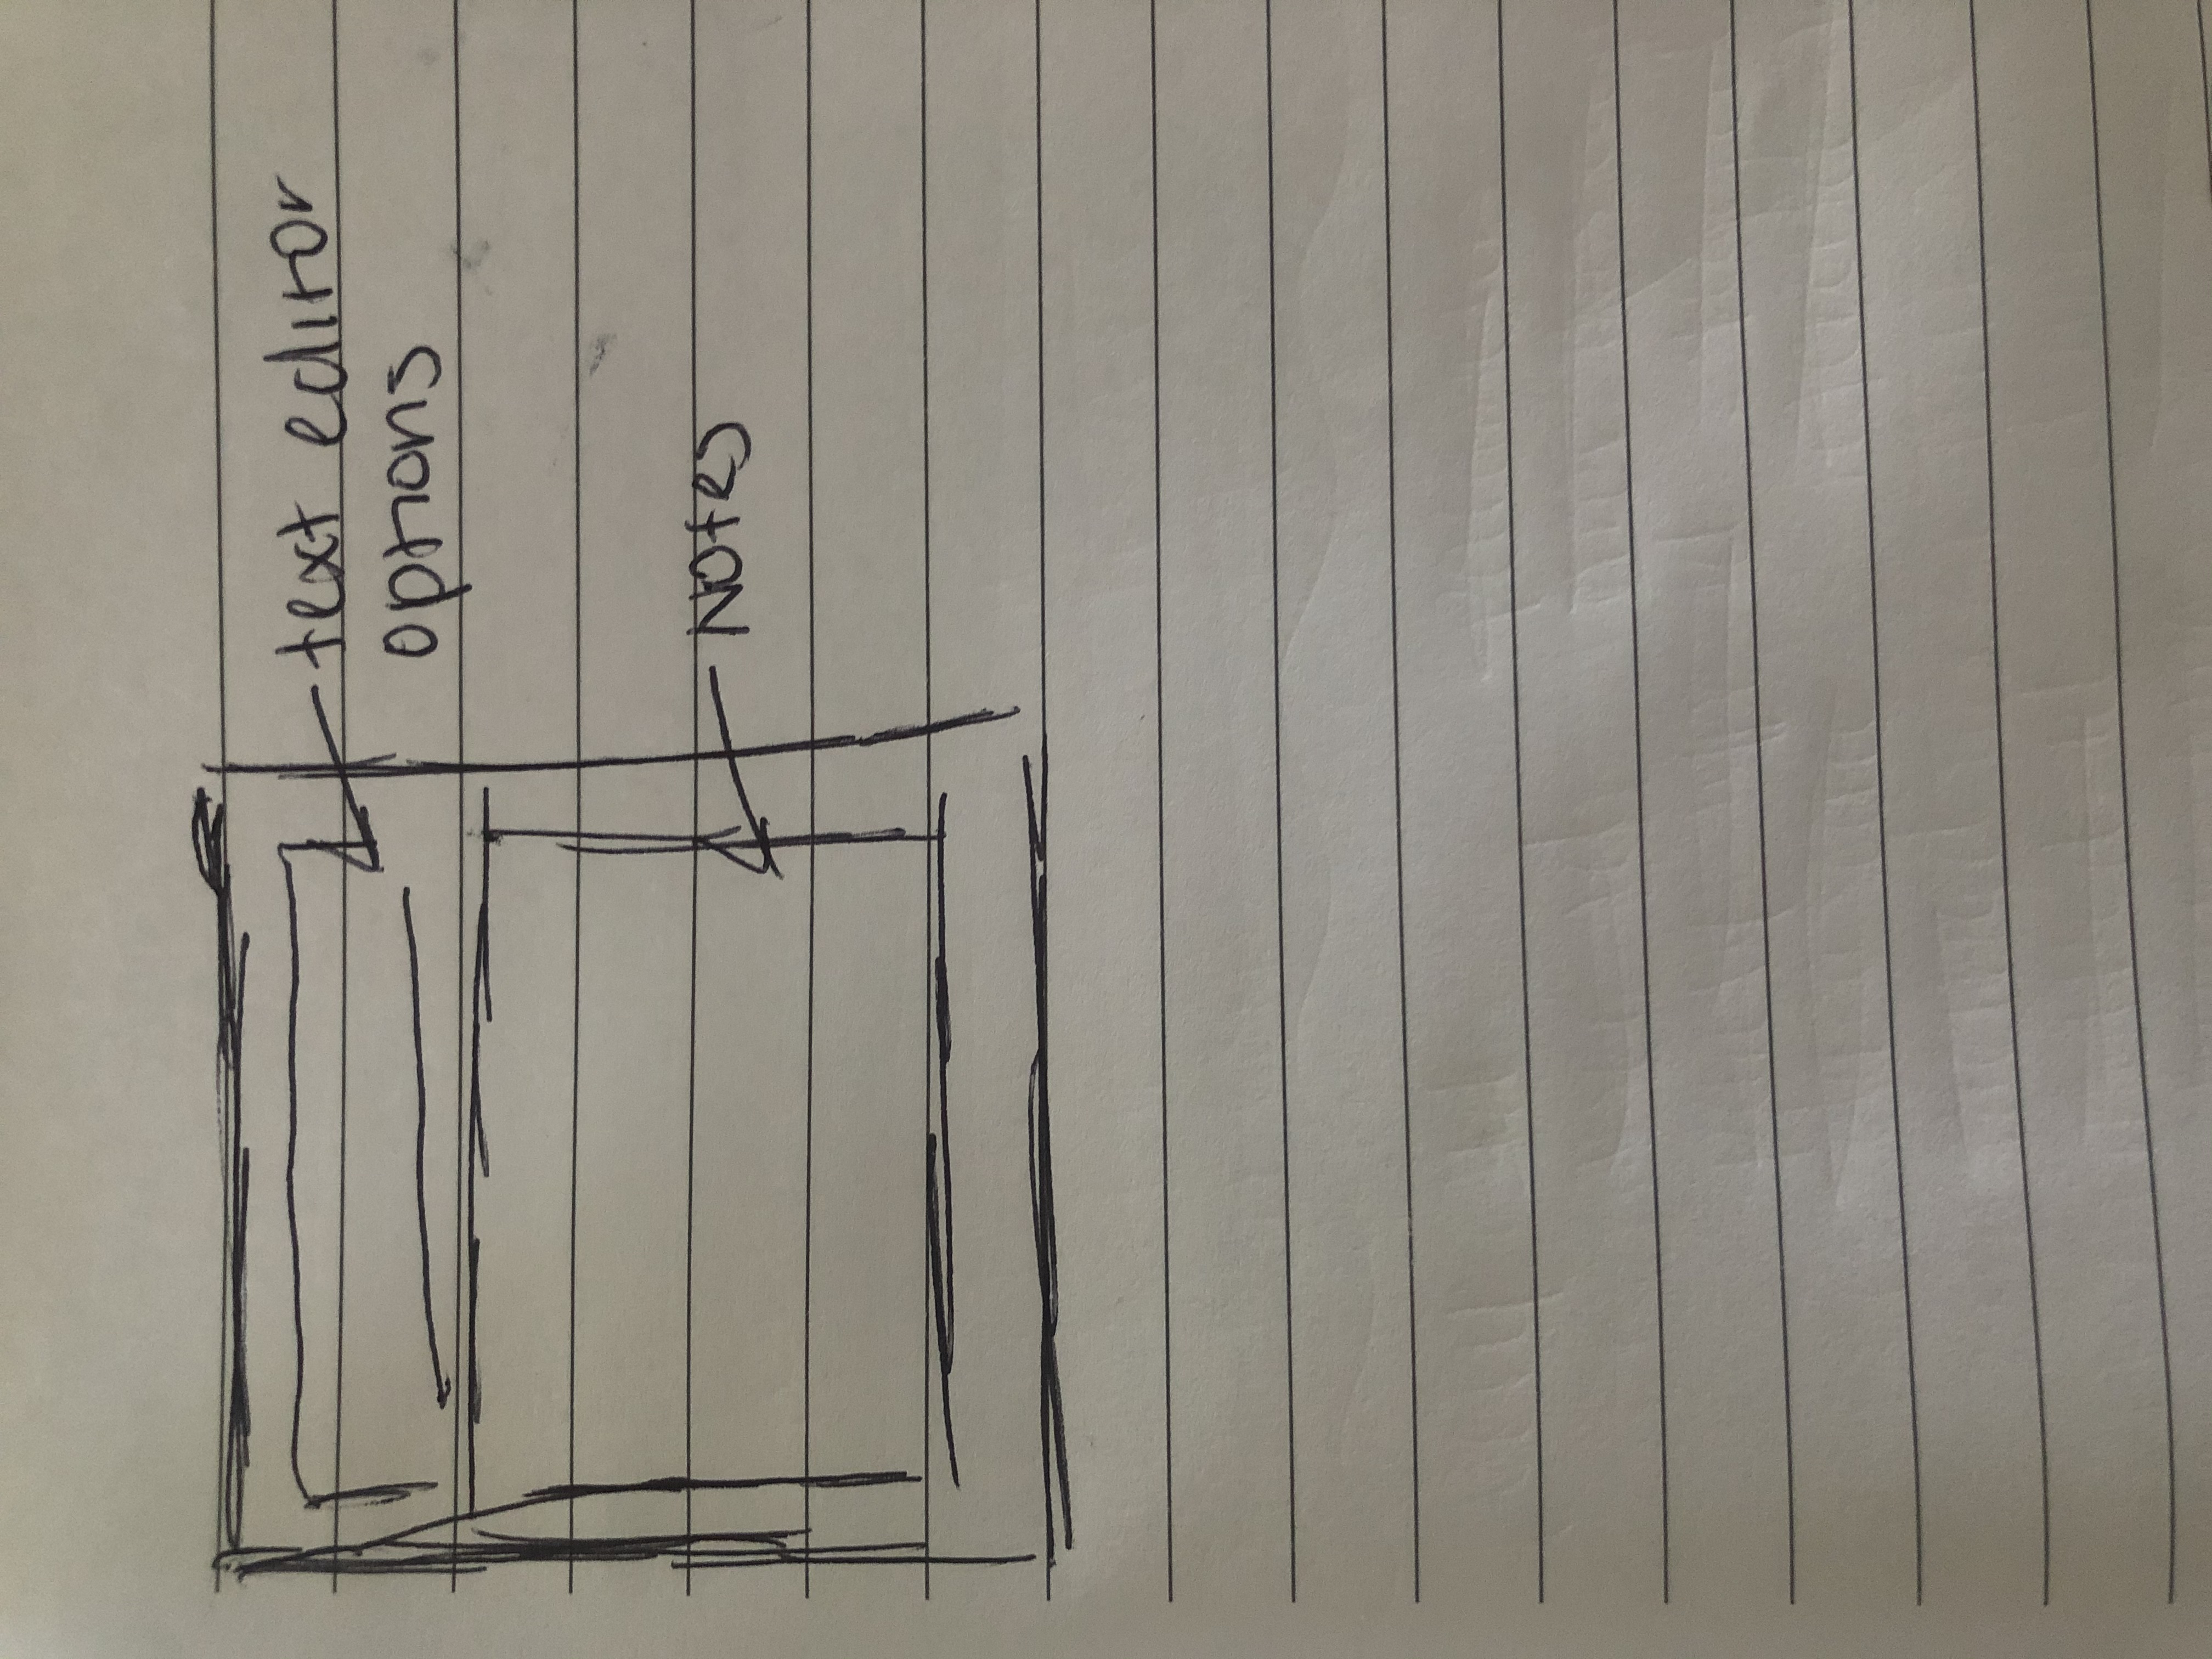 text editor
options
Notes